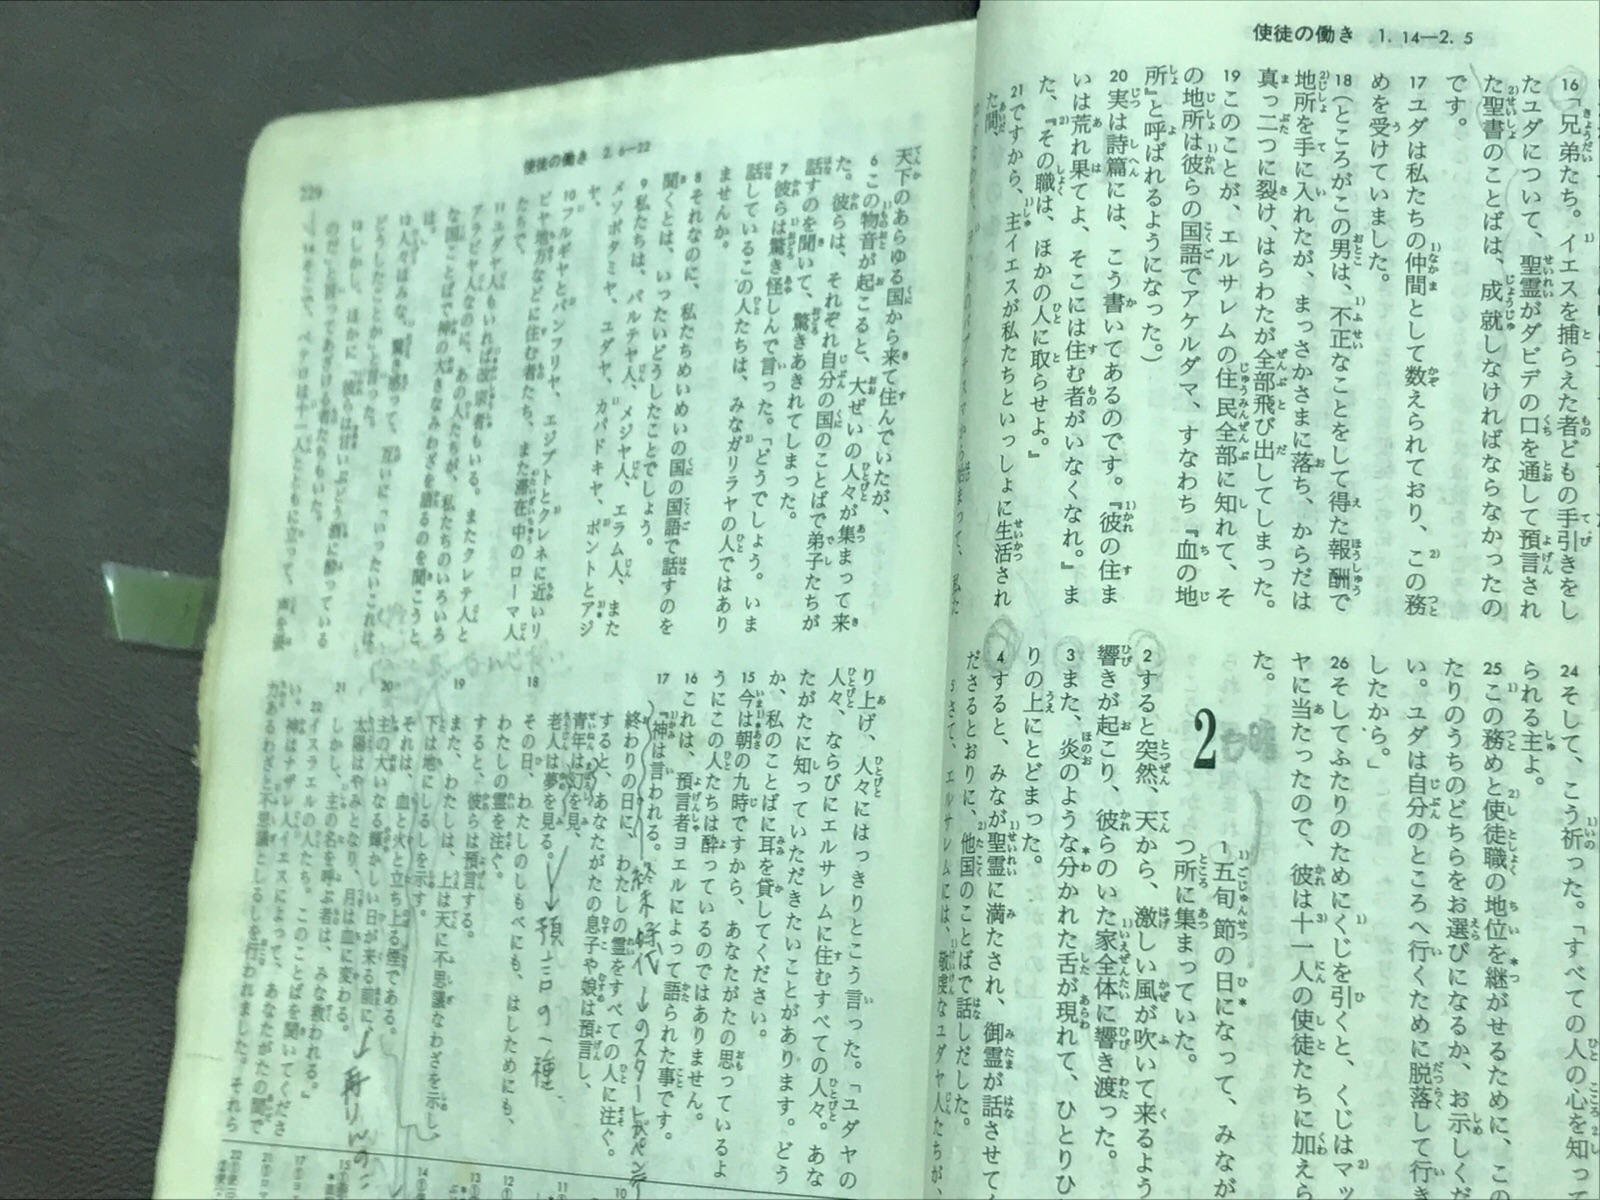 使徒の働き 1. 14—2. 5
16「兄弟たち。イエスを捕らえた者どもの手引きをし
たユダについて、聖霊がダビデの口を通して預言され
た聖書のことばは、成就しなければならなかったの
です。
17 ユダは私たちの仲間として数えられており、この務
めを受けていました。
18（ところがこの男は、不正なことをして得た報酬で
地所を手に入れたが、まっさかさまに落ち、からだは
真っ二つに裂け、はらわたが全部飛び出してしまった。
19 このことが、エルサレムの住民全部に知れて、そ
の地所は彼らの国語でアケルダマ、すなわち『血の地
所』と呼ばれるようになった。）
20 実は詩篇には、こう書いてあるのです。『彼の住ま
いは荒れ果てよ、そこには住む者がいなくなれ。』ま
た、『その職は、ほかの人に取らせよ。』
21 ですから、主イエスが私たちといっしょに生活され
た間、
24 そして、こう祈った。「すべての人の心を知って
られる主よ。
25 この務めと使徒職の地位を継がせるために、この
たりのうちのどちらをお選びになるか、お示しくだ
い。ユダは自分のところへ行くために脱落して行き
したから。」
26 そしてふたりのためにくじを引くと、くじはマッ
ヤに当たったので、彼は十一人の使徒たちに加えら
た。
2
1 五旬節の日になって、みなが
つ所に集まっていた。
2 すると突然、天から、激しい風が吹いて来るよう
響きが起こり、彼らのいた家全体に響き渡った。
3 また、炎のような分かれた舌が現れて、ひとりひ
りの上にとどまった。
4 すると、みなが聖霊に満たされ、御霊が話させてく
ださるとおりに、他国のことばで話しだした。
5 さて、エルサレムには、敬虔なユダヤ人たちが、
使徒の働き 2. 6—22
229
天下のあらゆる国から来て住んでいたが、
6 この物音が起こると、大ぜいの人々が集まって来
た。彼らは、それぞれ自分の国のことばで弟子たちが
話すのを聞いて、驚きあきれてしまった。
7 彼らは驚き怪しんで言った。「どうでしょう。いま
話しているこの人たちは、みなガリラヤの人ではあり
ませんか。
8 それなのに、私たちめいめいの国の国語で話すのを
聞くとは、いったいどうしたことでしょう。
9 私たちは、パルテヤ人、メジヤ人、エラム人、また
メソポタミヤ、ユダヤ、カパドキヤ、ポントとアジ
ヤ、
10 フルギヤとパンフリヤ、エジプトとクレネに近いリ
ビヤ地方などに住む者たち、また滞在中のローマ人
たちで、
11 ユダヤ人もいれば改宗者もいる。またクレテ人と
アラビヤ人なのに、あの人たちが、私たちのいろいろ
な国ことばで神の大きなみわざを語るのを聞こうと
は。
12 人々はみな、驚き惑って、互いに「いったいこれは
どうしたことか」と言った。
13 しかし、ほかに「彼らは甘いぶどう酒に酔っている
のだ」と言ってあざける者たちもいた。
14 そこで、ペテロは十一人とともに立って、声を張
り上げ、人々にはっきりとこう言った。「ユダヤの
人々、ならびにエルサレムに住むすべての人々。あな
たがたに知っていただきたいことがあります。どう
か、私のことばに耳を貸してください。
15 今は朝の九時ですから、あなたがたの思っているよ
うにこの人たちは酔っているのではありません。
16 これは、預言者ヨエルによって語られた事です。
17『神は言われる。
終わりの日に、わたしの霊をすべての人に注ぐ。
すると、あなたがたの息子や娘は預言し、
青年は幻を見、
老人は夢を見る。
18 その日、わたしのしもべにも、はしためにも、
わたしの霊を注ぐ。
すると、彼らは預言する。
19 また、わたしは、上は天に不思議なわざを示し、
下は地にしるしを示す。
それは、血と火と立ち上る煙である。
20 主の大いなる輝かしい日が来る前に、
太陽はやみとなり、月は血に変わる。
21 しかし、主の名を呼ぶ者は、みな救われる。』
22 イスラエルの人たち。このことばを聞いてくださ
い。神はナザレ人イエスによって、あなたがたの間で
力あるわざと不思議としるしを行われました。それら
→預言の一種